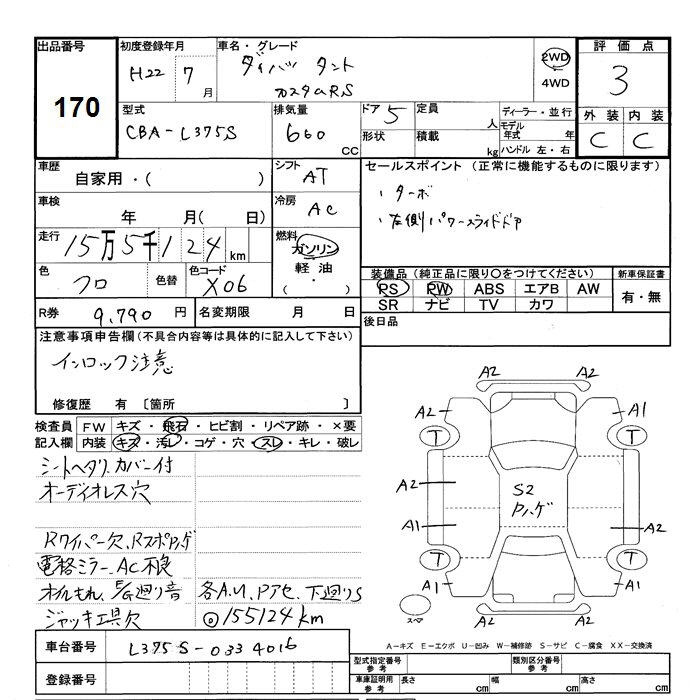 出品番号
170
初度登録年月
H22 7月
車名・グレード
ダイハツ タント
カスタムRS
2WD
4WD
評価点
3
外装 内装
C C
型式
CBA-L375S
排気量
660 CC
ドア 5
形状
定員 人
積載 kg
ディーラー・並行
モデル年式 年
ハンドル 左・右
車歴
自家用・( )
シフト
AT
車検
年 月( 日)
冷房
AC
走行
15万5千124 km
燃料
ガソリン
軽油
( ・ )
色
クロ
色替
色コード
X06
R券 9,790 円
名変期限 月 日
セールスポイント (正常に機能するものに限ります)
・ターボ
・左側パワースライドドア
装備品 (純正品に限り○をつけてください)
PS PW ABS エアB AW
SR ナビ TV カワ
新車保証書
有・無
後日品
注意事項申告欄(不具合内容等は具体的に記入して下さい)
インロック注意
修復歴 有 〔箇所 〕
検査員記入欄
FW キズ・飛石・ヒビ割・リペア跡・×要
内装 キズ・汚レ・コゲ・穴・スレ・キレ・破レ
シートヘタリ、カバー付
オーディオレス穴
Rワイパー欠、RスポPハゲ
電格ミラー、AC不良
オイルもれ、E/G廻り音
ジャッキ工具欠
各A.U、Pアセ、下廻りS
◎155124km
A2 A2
A2 A1
T T
A2
S2
Pハゲ
A1 A2
T T
A1 A1
A2
スペア
A-キズ E-エクボ U-凹み W-補修跡 S-サビ C-腐食 XX-交換済
車台番号
L375S-0334016
登録番号
型式指定番号 参考
類別区分番号 参考
車庫証明用 参考
長さ cm
幅 cm
高さ cm